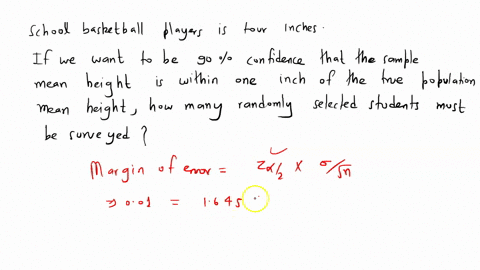 school basketball players is four inches.
If we want to be 90% confidence that the sample
mean height is within one inch of the true population
mean height, how many randomly selected students must
be surveyed?
Margin of error = Zα/2 × σ/√n
⇒ 0.01 = 1.645